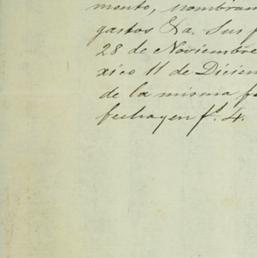 mento, nombram
gastos &a. Sus f
28 de Noviembre
xico 11 de Diciem
de la misma f
fecha y en f. 4.